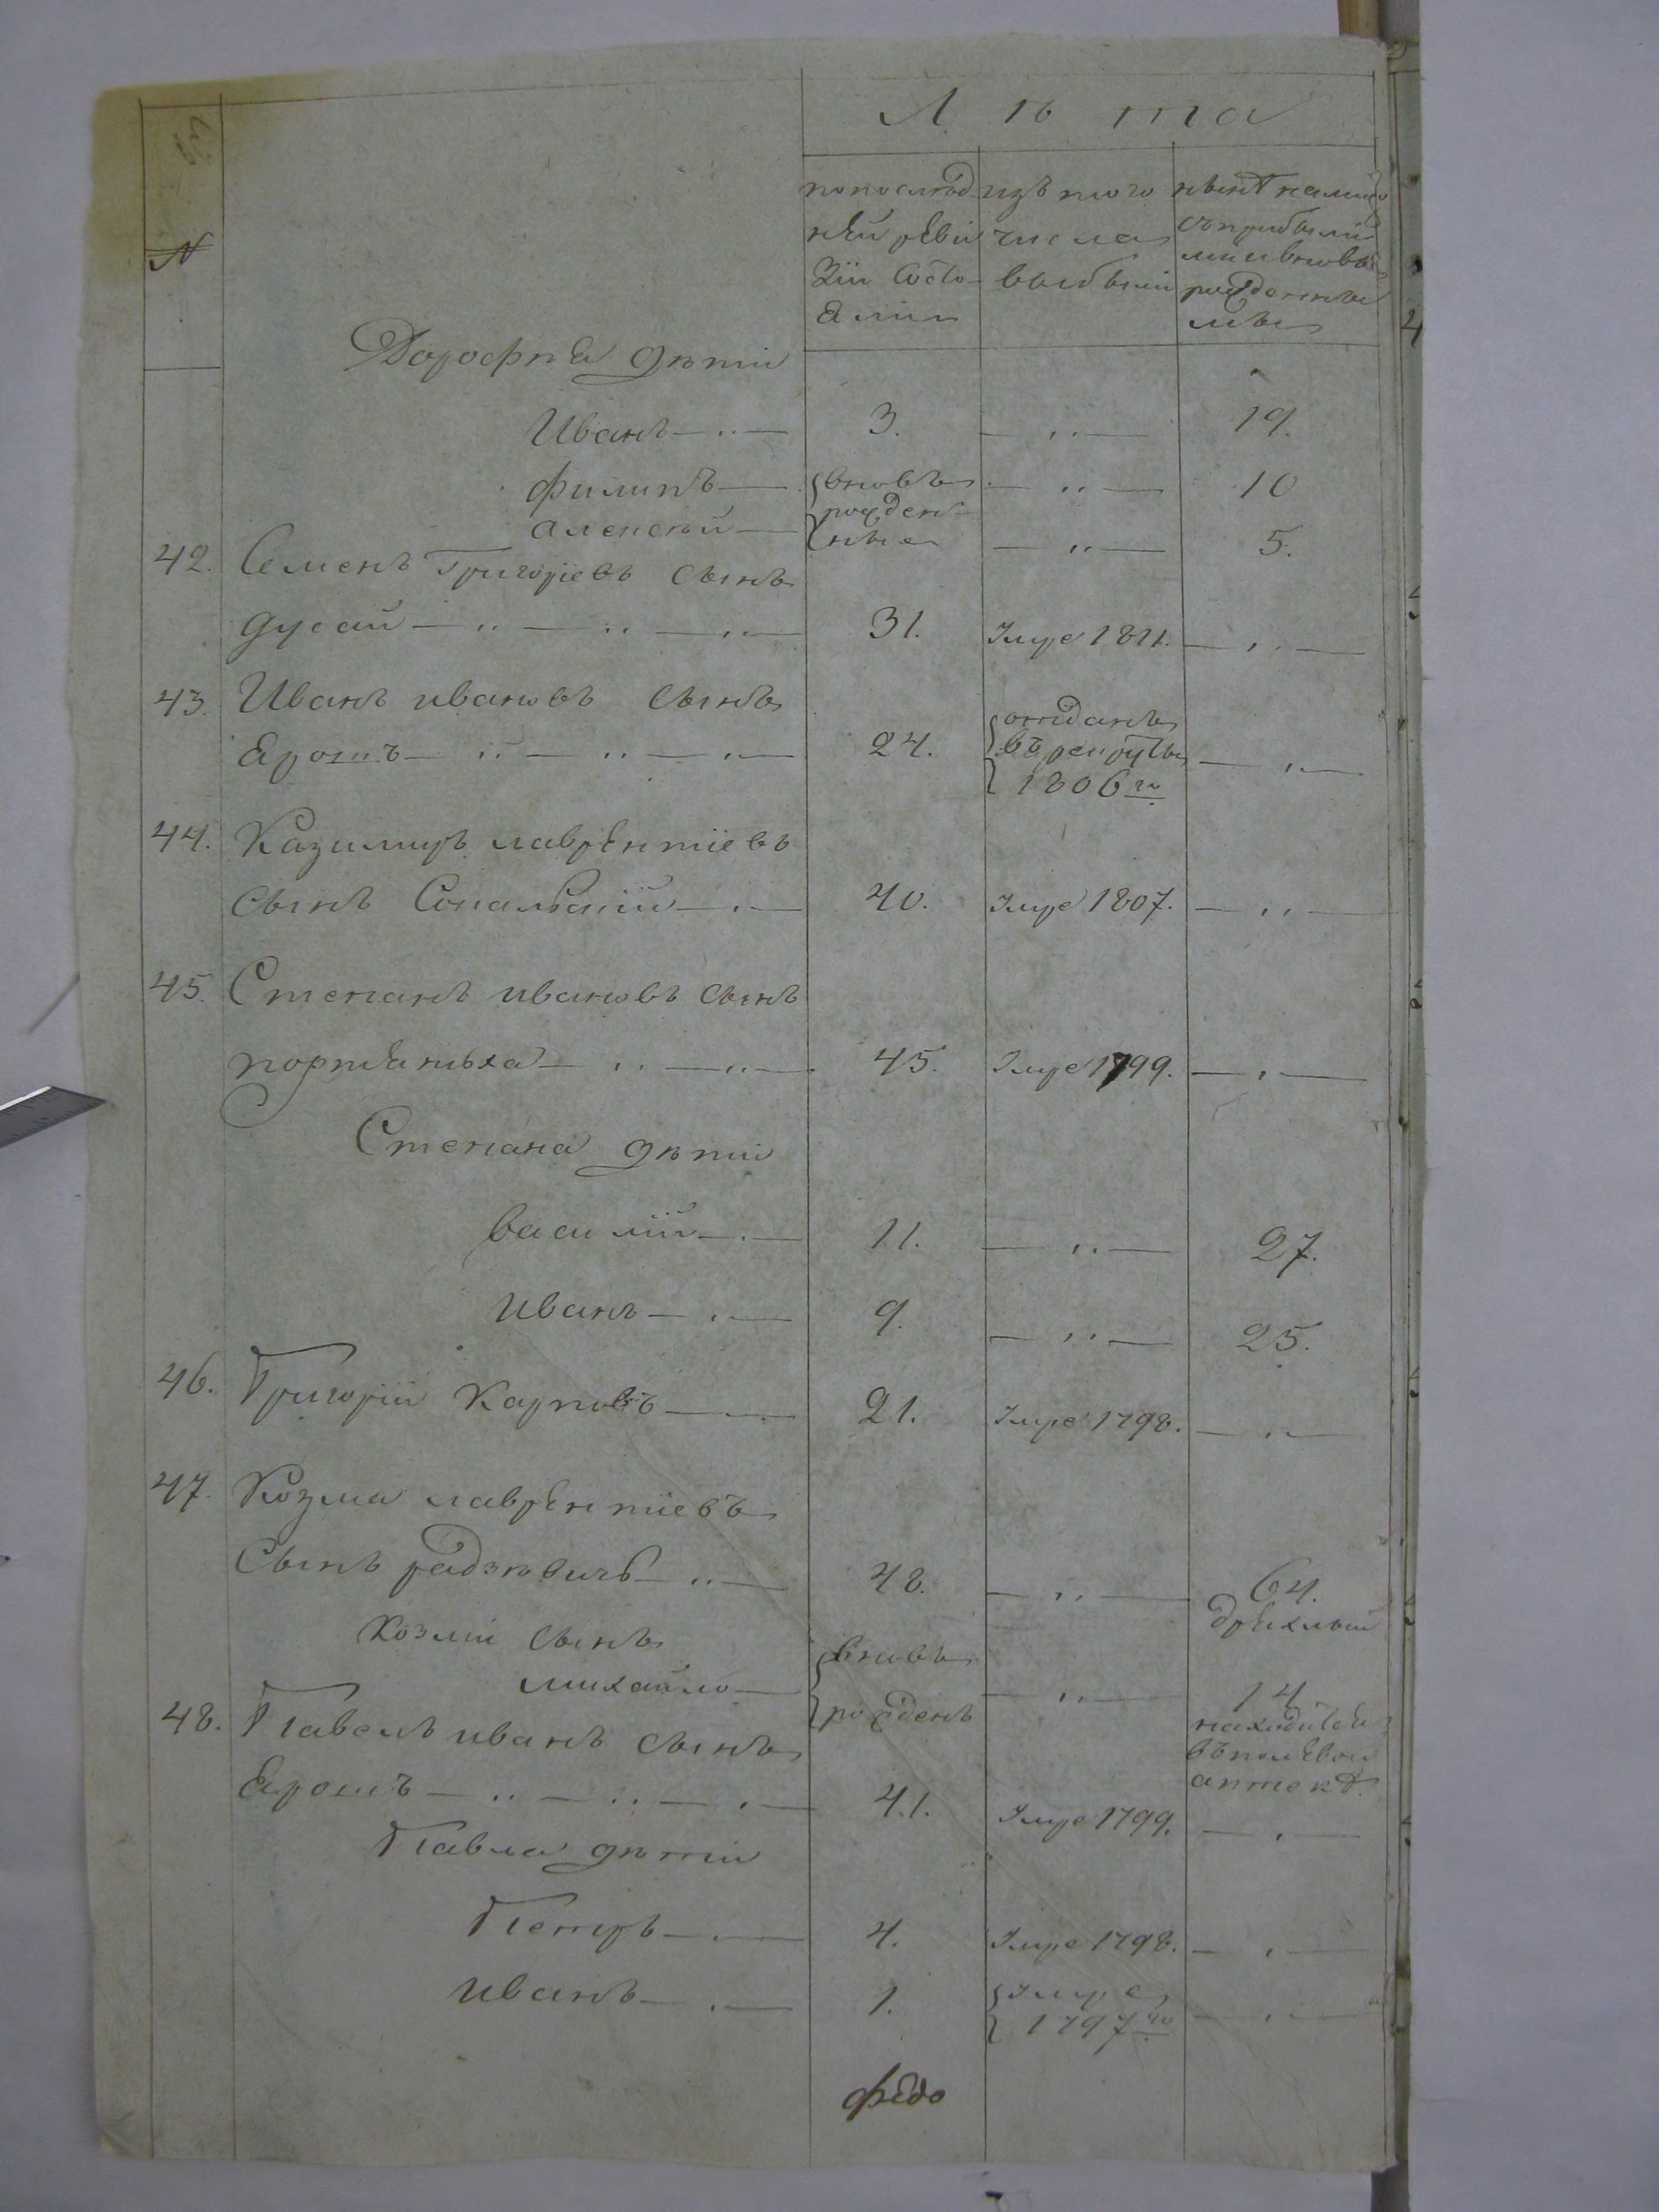 Лѣта
№
по послѣд
ней реви
зіи состо
яли
изъ того
числа
выбыли
нынѣ налицо
съ прибылы
ми и вновь
рожденны
ми
Дорофѣя дѣти
Иванъ 3. 19.
филипъ вновь 10
алексѣй рожден
ные 5.
42. Семенъ Григоріевъ сынъ
дусай 31. Умре 1811.
43. Иванъ ивановъ сынъ
Ярошъ 24. отданъ
въ рекруты
1806го
44. Казимиръ лаврентіевъ
сынъ 40. Умре 1807.
45. Степанъ ивановъ сынъ
портяныха 45. Умре 1799.
Степана дѣти
василій 11. 27.
иванъ 9. 25.
46. Григорій Карповъ 21. Умре 1798.
47. Козма лаврентіевъ
сынъ радзѣвичъ 48. 64.
дряхлый
Козми сынъ
михайло вновь
рожденъ 14
находится
въ полевой
аптекѣ
48. Павелъ иванъ сынъ
Ярошъ 41. Умре 1799.
Павла дѣти
Петръ 4. Умре 1798.
иванъ 1. Умре
1797го
федо